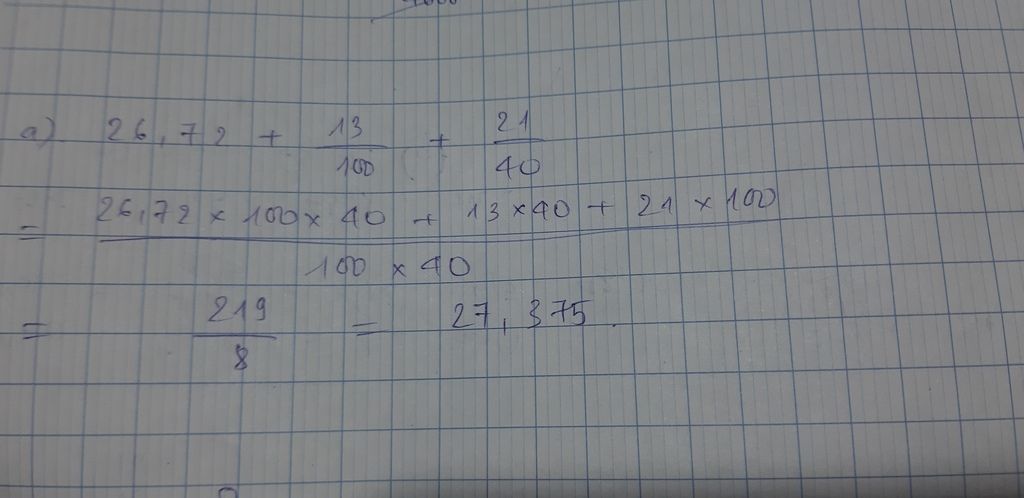 a) 26,72 + 13/100 + 21/40
= 26,72 × 100 × 40 + 13 × 40 + 21 × 100 / 100 × 40
= 219/8 = 27,375.